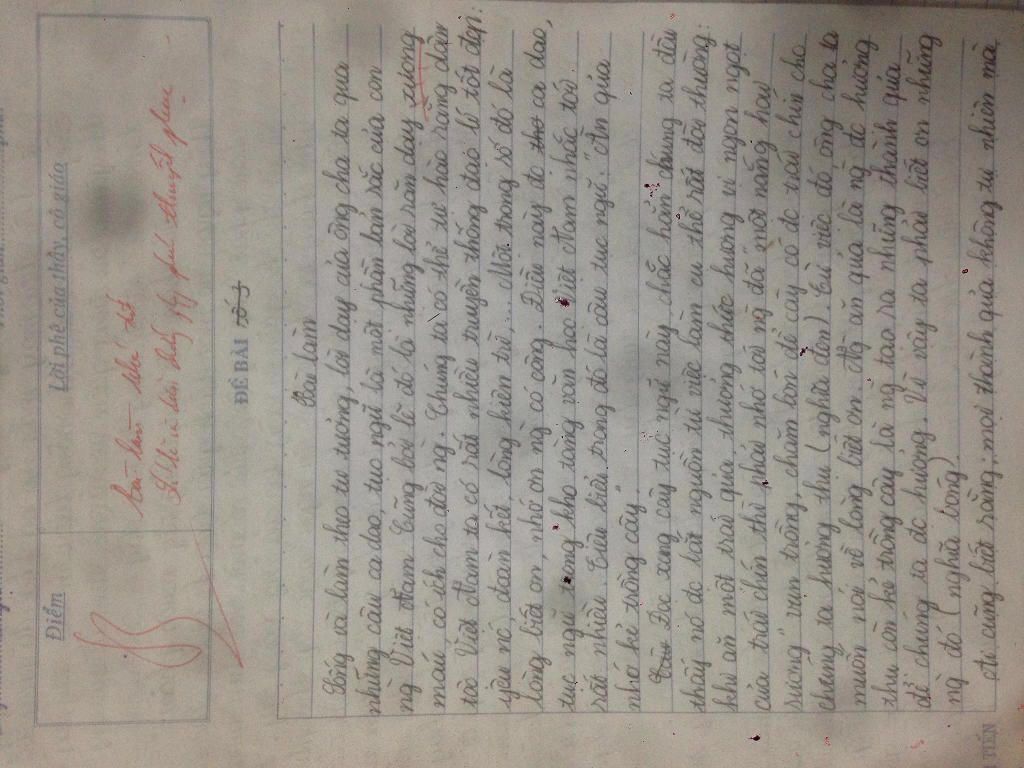 Điểm
Lời phê của thầy, cô giáo
Bài làm khá tốt
ĐỀ BÀI: Số 5
Bài làm
Sống và làm theo tư tưởng, lời dạy của ông cha ta qua
những câu ca dao, tục ngữ là nét phần bản sắc của con
ng Việt Nam. Cũng bởi lẽ đó là những lời răn dạy xương
máu có ích cho đời ng. Chúng ta có thể tự hào rằng dân
tộc Việt Nam ta có rất nhiều truyền thống đạo lí tốt đẹp:
yêu nc, đoàn kết, lòng hiếu tử,... Một trong số đó là
lòng biết ơn, nhớ ơn ng có công. Điều này đc thơ ca dao,
tục ngữ trong kho tàng văn học Việt Nam nhắc tới
rất nhiều. Tiêu biểu trong đó là câu tục ngữ: "Ăn quả
nhớ kẻ trồng cây".
Đọc xong câu tục ngữ này, chắc hẳn chúng ta đều
thấy nó đc bắt nguồn từ việc làm cụ thể rất đời thường:
khi ăn một trái quả, thưởng thức hương vị ngon ngọt
của trái chín thì phải nhớ tới ng đã "một nắng hai
sương" vun trồng, chăm bón để cây có đc trái chín cho
chúng ta hưởng thụ (nghĩa đen). Từ việc đó ông cha ta
muốn nói về lòng biết ơn. Ng ăn quả là ng đc hưởng
thụ còn kẻ trồng cây là ng tạo ra những thành quả
để chúng ta đc hưởng. Vì vậy ta phải biết ơn những
ng đó (nghĩa bóng).
Ai cũng biết rằng, mọi thành quả không tự nhiên mà
TIẾN